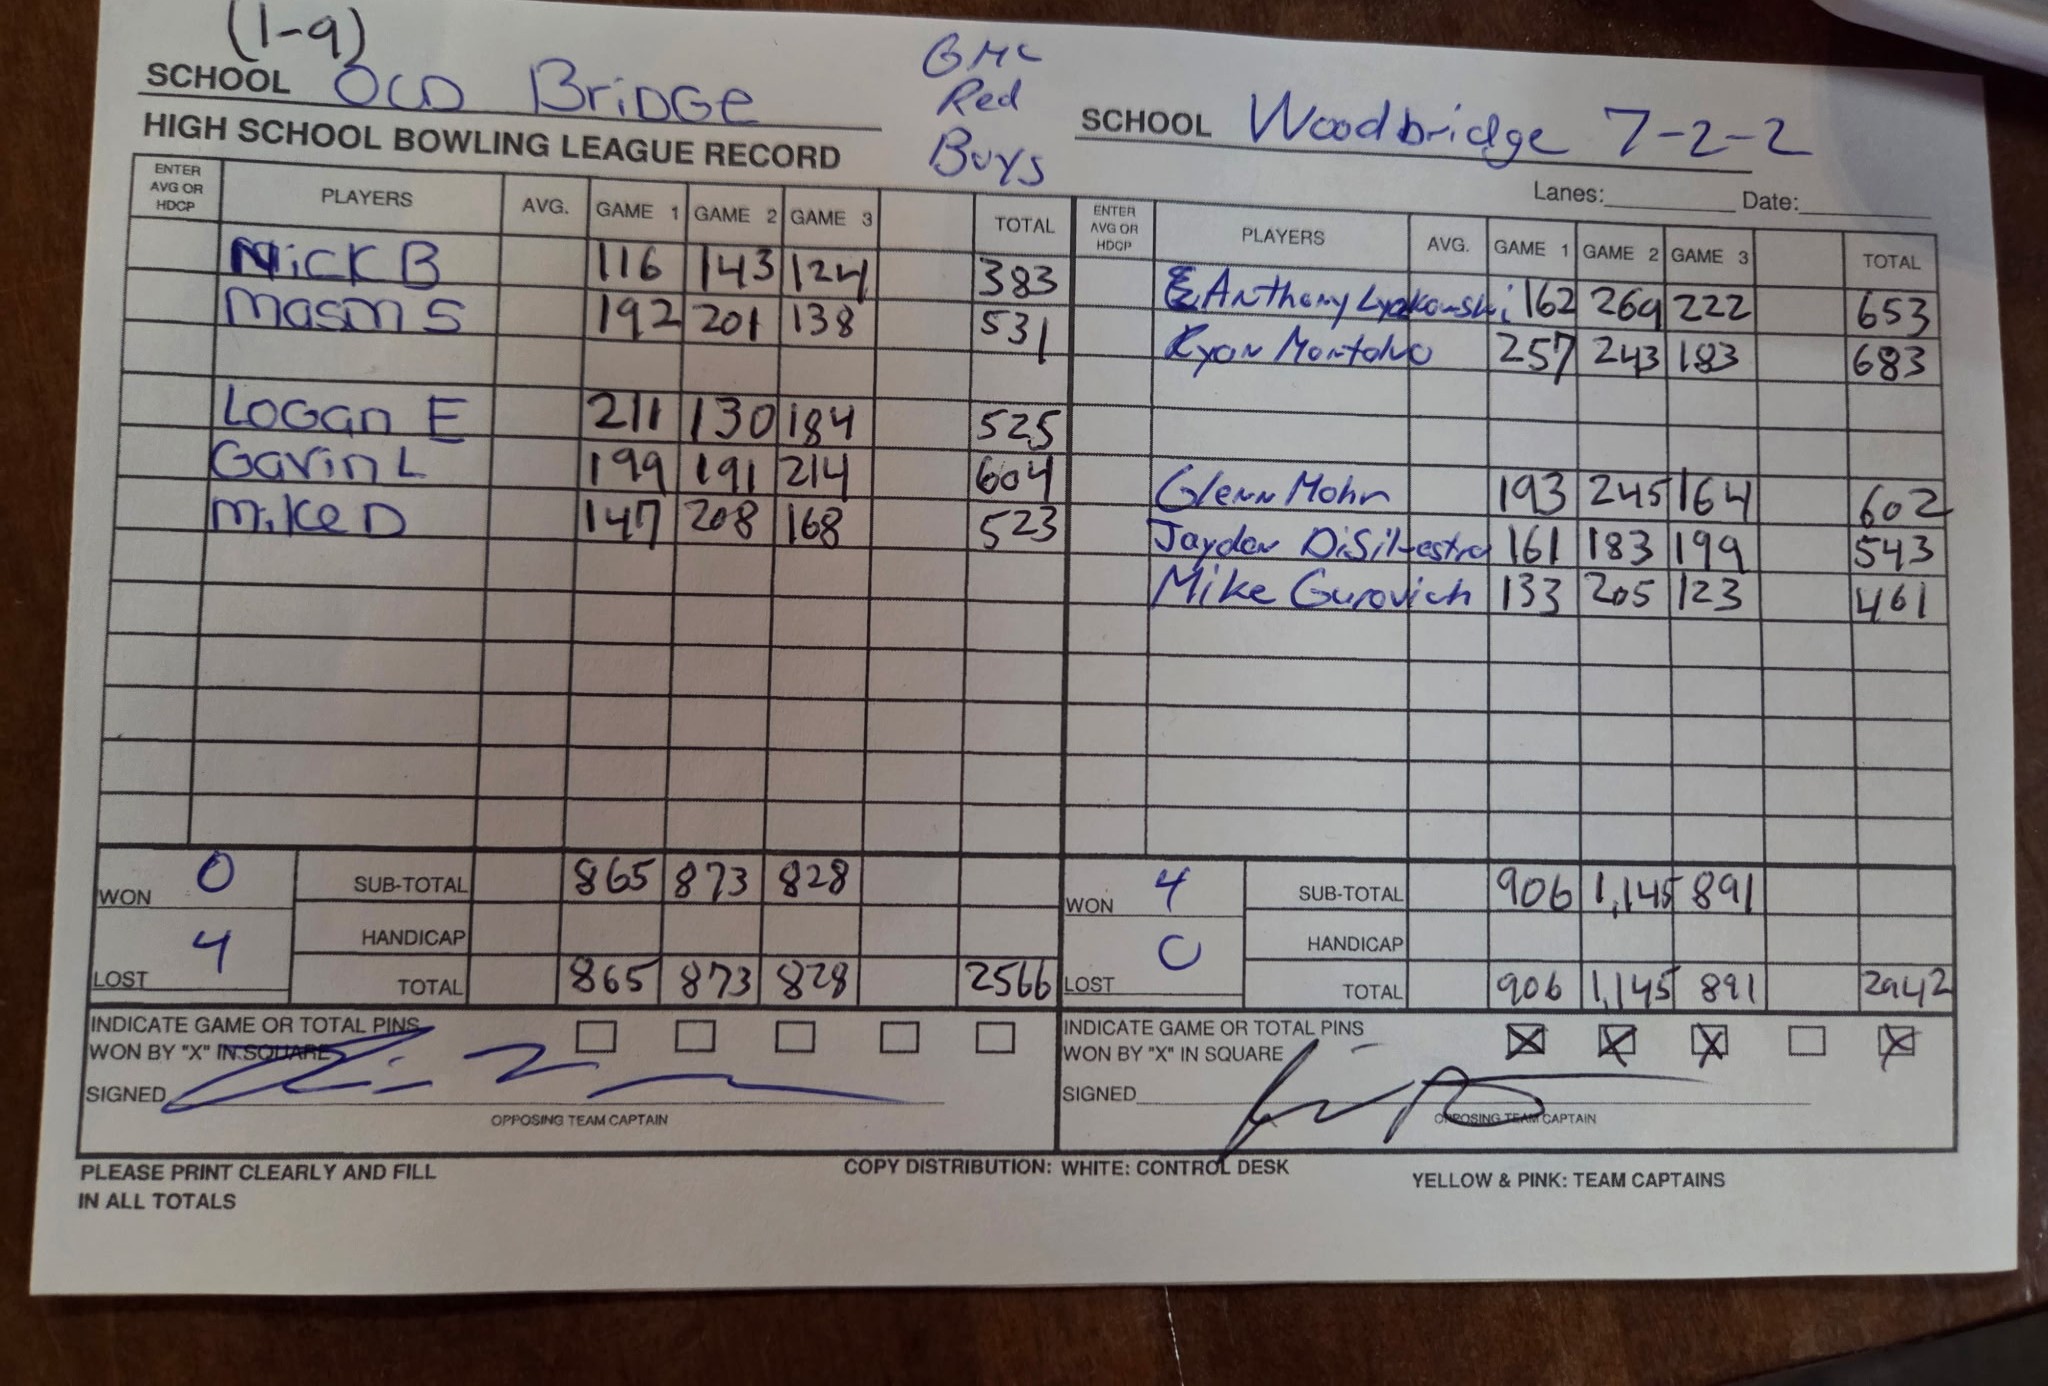 (1-9)
SCHOOL OLD BRiDGe
GMC
Red
Boys
SCHOOL Woodbridge 7-2-2
HIGH SCHOOL BOWLING LEAGUE RECORD
Lanes: Date:
ENTER AVG OR HDCP PLAYERS AVG. GAME 1 GAME 2 GAME 3 TOTAL
Nick B 116 143 124 383
Mason S 192 201 138 531
Logan E 211 130 184 525
Gavin L 199 191 214 604
Mike D 147 208 168 523
WON 0 SUB-TOTAL 865 873 828
HANDICAP
LOST 4 TOTAL 865 873 828 2566
INDICATE GAME OR TOTAL PINS
WON BY "X" IN SQUARE
SIGNED
OPPOSING TEAM CAPTAIN
ENTER AVG OR HDCP PLAYERS AVG. GAME 1 GAME 2 GAME 3 TOTAL
Anthony 162 269 222 653
Ryan Montalvo 257 243 183 683
Glenn Mohr 193 245 164 602
Jayden DiSilvestro 161 183 199 543
Mike Gurovich 133 205 123 461
WON 4 SUB-TOTAL 906 1,145 891
HANDICAP
LOST 0 TOTAL 906 1,145 891 2942
INDICATE GAME OR TOTAL PINS
WON BY "X" IN SQUARE X X X X
SIGNED
OPPOSING TEAM CAPTAIN
PLEASE PRINT CLEARLY AND FILL
IN ALL TOTALS
COPY DISTRIBUTION: WHITE: CONTROL DESK
YELLOW & PINK: TEAM CAPTAINS